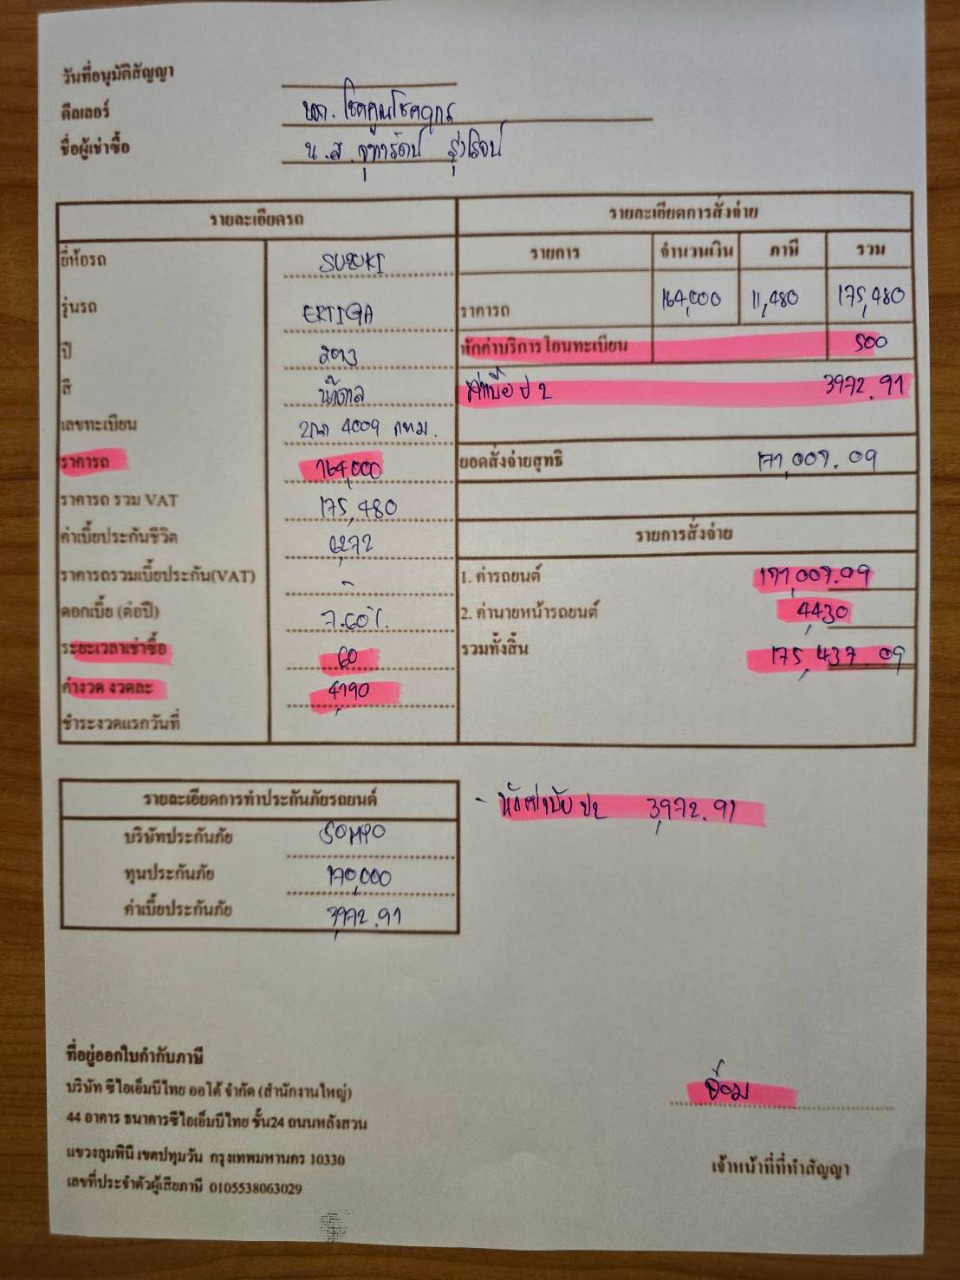 วันที่อนุมัติสัญญา
ดีลเลอร์ หจก. โชคคูณโชคถาวร
ชื่อผู้เช่าซื้อ น.ส. จุฑารัตน์ รุ่งโรจน์
รายละเอียดรถ
ยี่ห้อรถ SUZUKI
รุ่นรถ ERTIGA
ปี 2013
สี น้ำตาล
เลขทะเบียน 2กก 4009 กทม.
ราคารถ 164,000
ราคารถ รวม VAT 175,480
ค่าเบี้ยประกันชีวิต 6272
ราคารถรวมเบี้ยประกัน(VAT) -
ดอกเบี้ย (ต่อปี) 7.60%
ระยะเวลาเช่าซื้อ 60
ค่างวด งวดละ 4,190
ชำระงวดแรกวันที่
รายละเอียดการสั่งจ่าย
รายการ จำนวนเงิน ภาษี รวม
ราคารถ 164,000 11,480 175,480
หักค่าบริการโอนทะเบียน 500
ค่าเบี้ย ป 2 3972.91
ยอดสั่งจ่ายสุทธิ 171,007.09
รายการสั่งจ่าย
1. ค่ารถยนต์ 171,007.09
2. ค่านายหน้ารถยนต์ 4,430
รวมทั้งสิ้น 175,437.09
รายละเอียดการทำประกันภัยรถยนต์
บริษัทประกันภัย SOMPO
ทุนประกันภัย 170,000
ค่าเบี้ยประกันภัย 3,972.91
- หักค่าเบี้ย ป2 3,972.91
ที่อยู่ออกใบกำกับภาษี
บริษัท ซีไอเอ็มบีไทย ออโต้ จำกัด (สำนักงานใหญ่)
44 อาคาร ธนาคารซีไอเอ็มบีไทย ชั้น24 ถนนหลังสวน
แขวงลุมพินี เขตปทุมวัน กรุงเทพมหานคร 10330
เลขที่ประจำตัวผู้เสียภาษี 0105538063029
อ้อม
เจ้าหน้าที่ที่ทำสัญญา